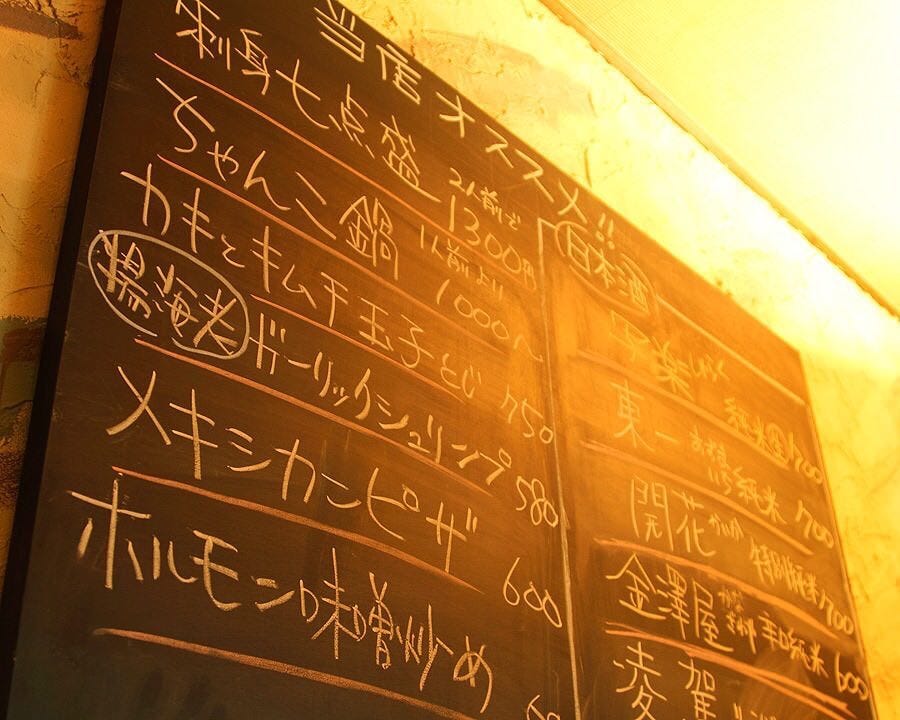 当店オススメ!!
刺身七点盛 2人前で1300円
ちゃんこ鍋 1人前より1000〜
カキとキムチ玉子とじ 750
ガーリックシュリンプ 580
メキシカンピザ 600
ホルモン味噌炒め
日本酒
東一 あずまいち 純米 700
開花 かいか 特別純米 700
金澤屋 かなざわや 辛口純米 600